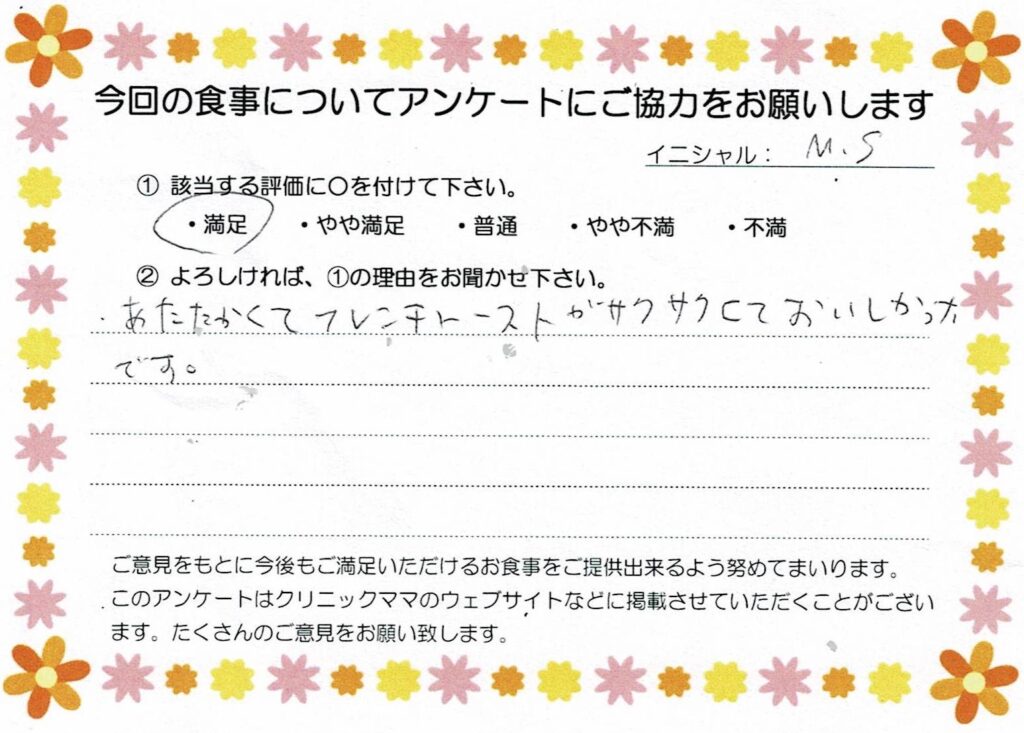 今回の食事についてアンケートにご協力をお願いします
イニシャル： M.S
① 該当する評価に〇を付けて下さい。
・満足 ・やや満足 ・普通 ・やや不満 ・不満
② よろしければ、①の理由をお聞かせ下さい。
・あたたかくてフレンチトーストがサクサクしておいしかった
です。
ご意見をもとに今後もご満足いただけるお食事をご提供出来るよう努めてまいります。
このアンケートはクリニックママのウェブサイトなどに掲載させていただくことがござい
ます。たくさんのご意見をお願い致します。